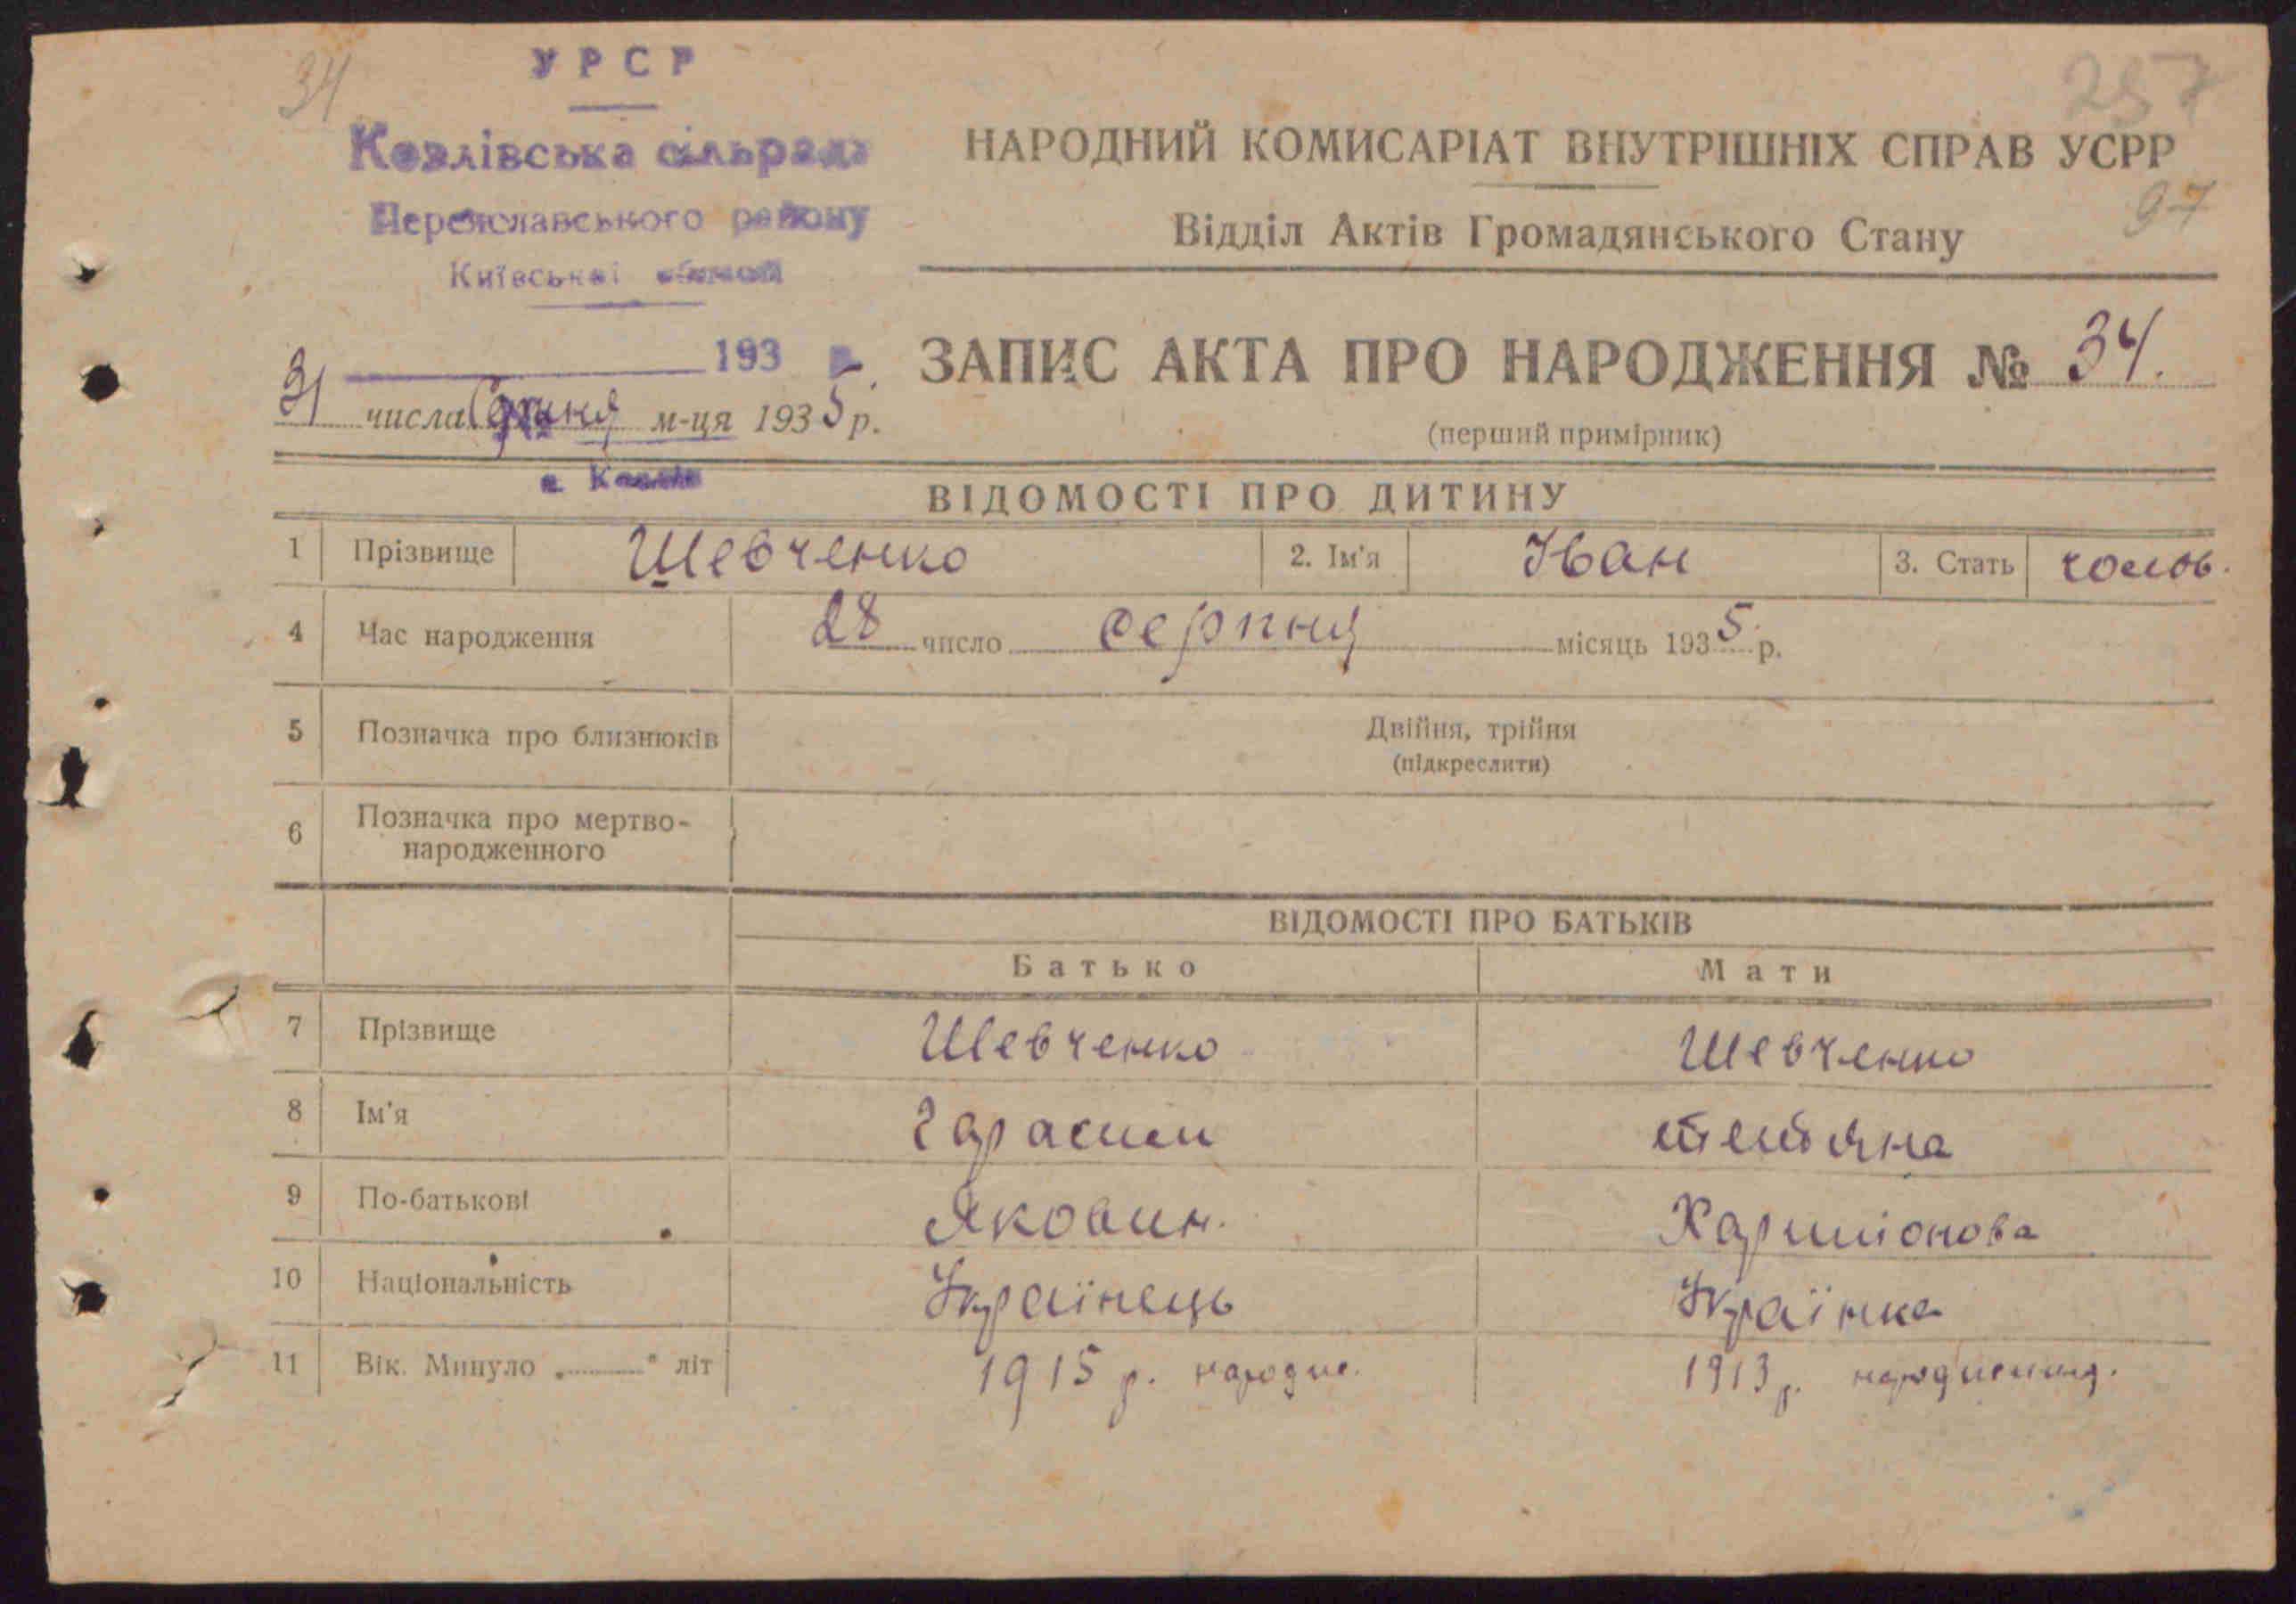 34
УРСР
257
Козлівська сільрада
НАРОДНИЙ КОМИСАРІАТ ВНУТРІШНІХ СПРАВ УСРР
97
Переяславського району
Відділ Актів Громадянського Стану
Київської
193 р.
ЗАПИС АКТА ПРО НАРОДЖЕННЯ № 34.
31 числа Серпня м-ця 1935 р.
(перший примірник)
с. Козлів
ВІДОМОСТІ ПРО ДИТИНУ
1 Прізвище Шевченко 2. Ім'я Іван 3. Стать чолов.
4 Час народження 28 число серпня місяць 1935 р.
5 Позначка про близнюків Двійня, трійня
(підкреслити)
6 Позначка про мертво-
народженного
ВІДОМОСТІ ПРО БАТЬКІВ
Батько Мати
7 Прізвище Шевченко Шевченко
8 Ім'я Гарасим тетяна
9 По-батькові Яковин.
10 Національність Українець Українка
11 Вік. Минуло „ " літ 1915 р. народже. 1913 р.